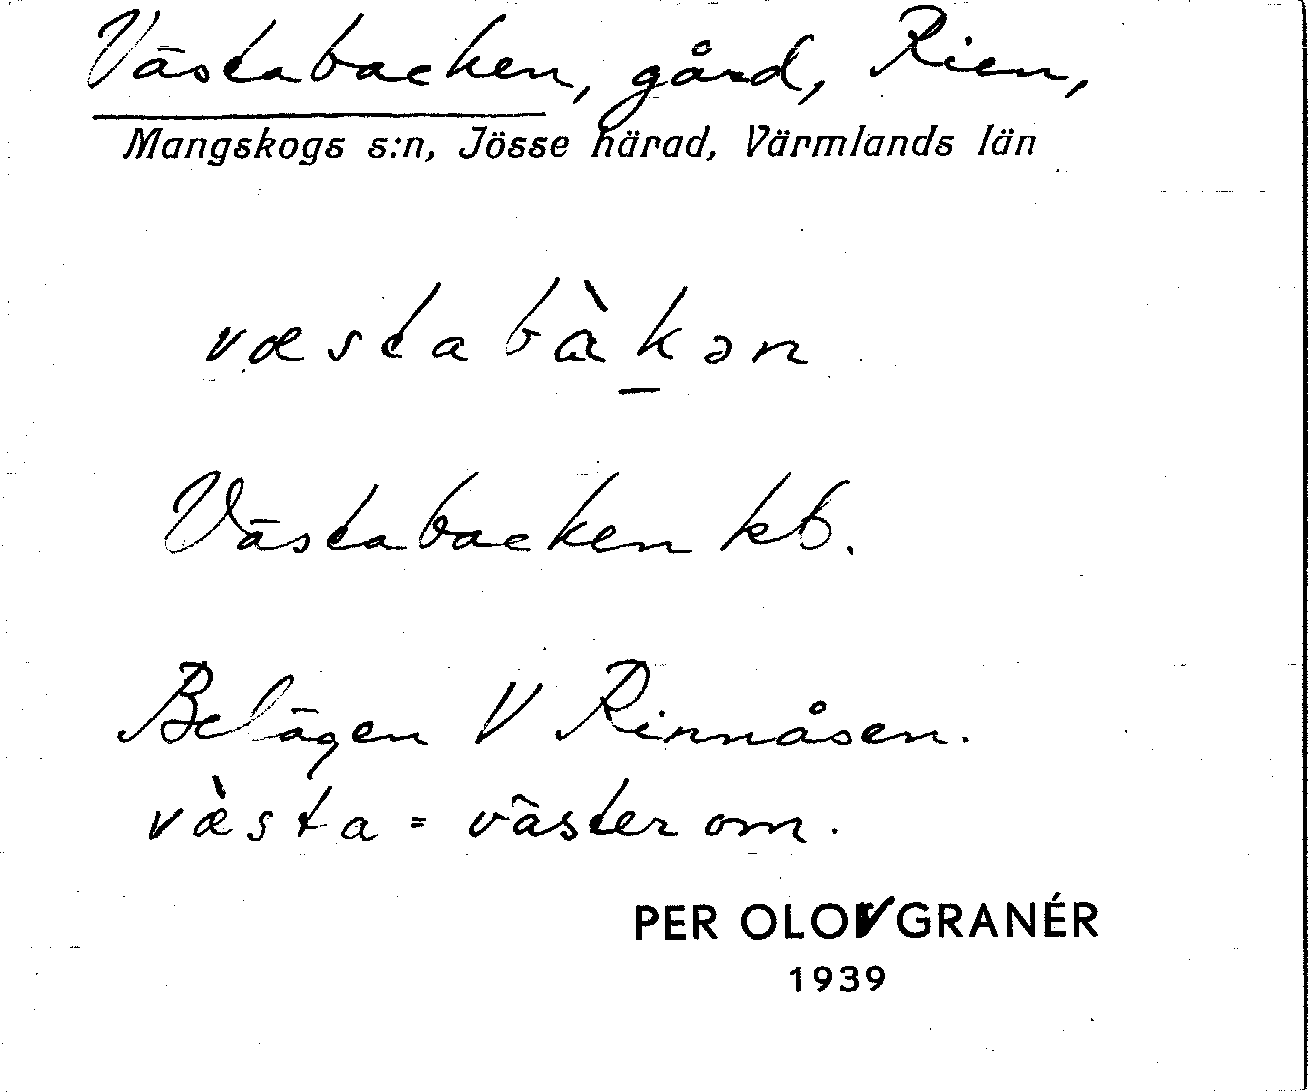 Västabacken, gård, Rien,
Mangskogs s:n, Jösse härad, Värmlands län
væstabàkən
Västabacken kb.
Belägen V Rinnåsen.
væ̀sta = väster om.
PER OLOV GRANÉR
1939